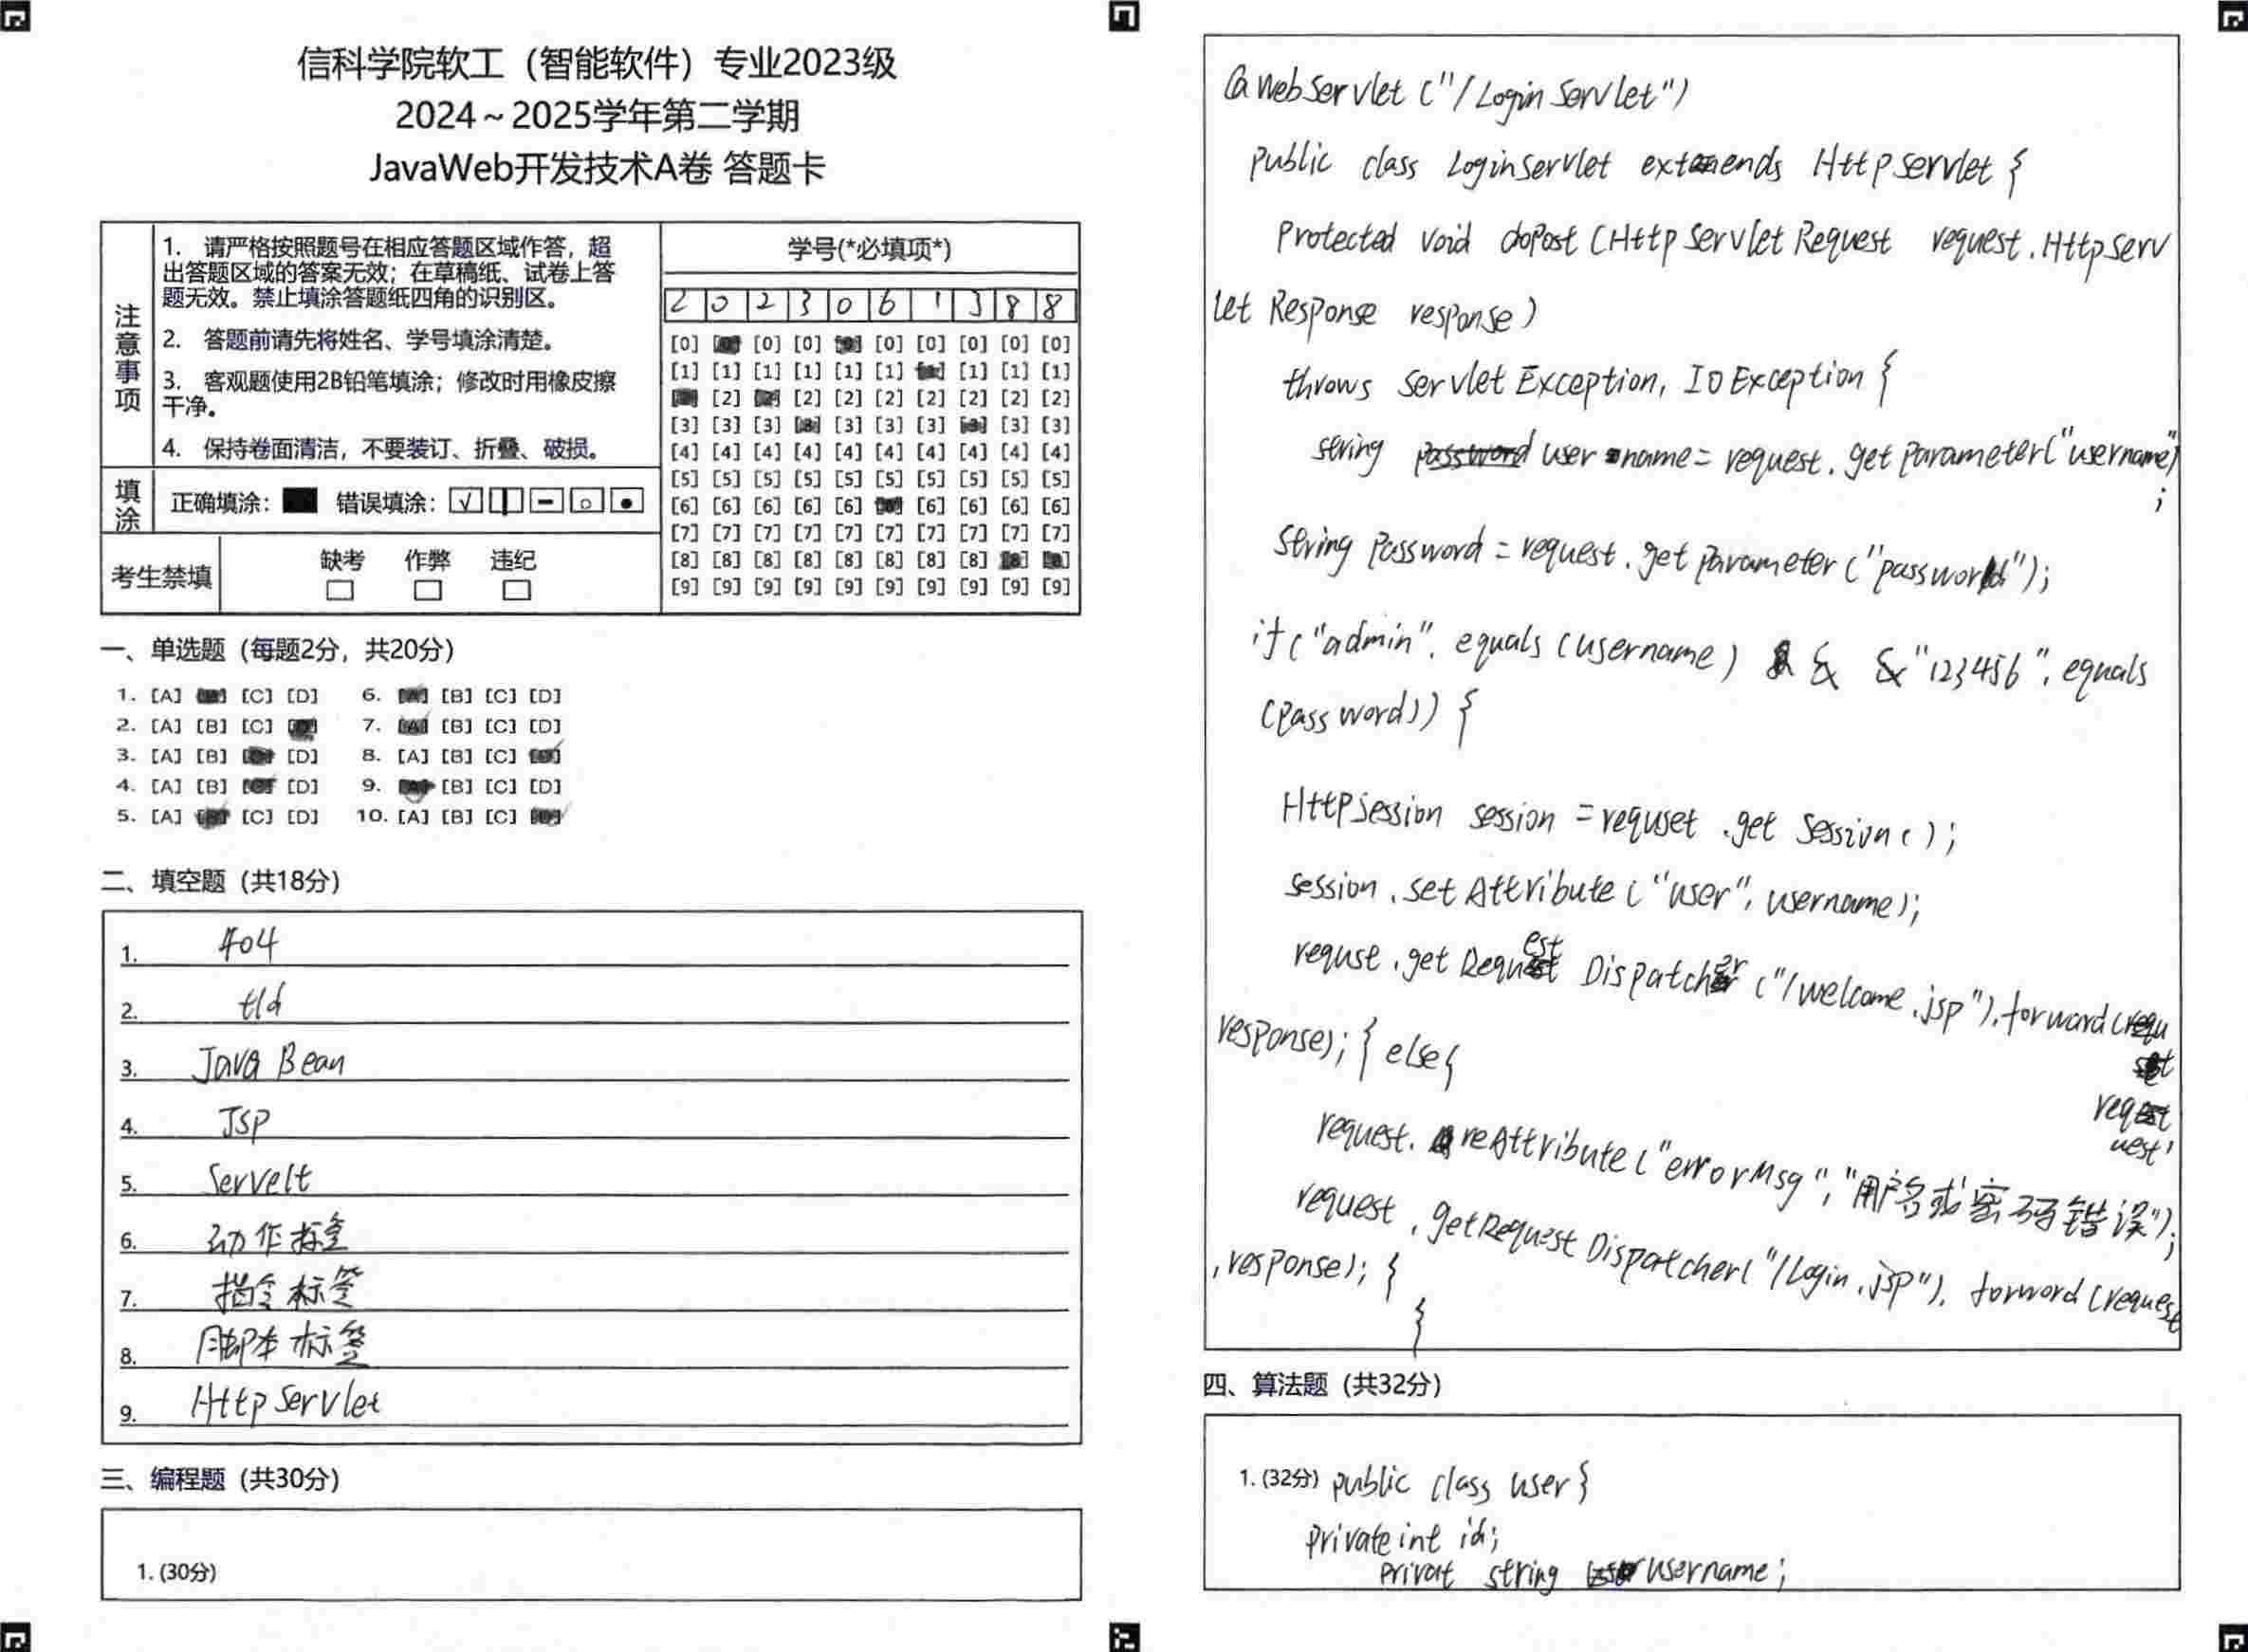 信科学院软工（智能软件）专业2023级
2024～2025学年第二学期
JavaWeb开发技术A卷 答题卡
注意事项
1. 请严格按照题号在相应答题区域作答，超
出答题区域的答案无效；在草稿纸、试卷上答
题无效。禁止填涂答题纸四角的识别区。
2. 答题前请先将姓名、学号填涂清楚。
3. 客观题使用2B铅笔填涂；修改时用橡皮擦
干净。
4. 保持卷面清洁，不要装订、折叠、破损。
填涂 正确填涂： 错误填涂：
考生禁填 缺考 作弊 违纪
学号(*必填项*)
2 0 2 3 0 6 1 3 8 8
[0] [0] [0] [0] [0] [0] [0] [0]
[1] [1] [1] [1] [1] [1] [1] [1] [1]
[2] [2] [2] [2] [2] [2] [2] [2]
[3] [3] [3] [3] [3] [3] [3] [3]
[4] [4] [4] [4] [4] [4] [4] [4] [4] [4]
[5] [5] [5] [5] [5] [5] [5] [5] [5] [5]
[6] [6] [6] [6] [6] [6] [6] [6] [6]
[7] [7] [7] [7] [7] [7] [7] [7] [7] [7]
[8] [8] [8] [8] [8] [8] [8] [8]
[9] [9] [9] [9] [9] [9] [9] [9] [9] [9]
一、单选题（每题2分，共20分）
1. [A] [C] [D] 6. [B] [C] [D]
2. [A] [B] [C] 7. [B] [C] [D]
3. [A] [B] [D] 8. [A] [B] [C]
4. [A] [B] [D] 9. [B] [C] [D]
5. [A] [C] [D] 10. [A] [B] [C]
二、填空题（共18分）
1. 404
2. tld
3. Java Bean
4. JSP
5. Servelt
6. 动作标签
7. 指令标签
8. 脚本标签
9. Http Servlet
三、编程题（共30分）
1. (30分)
@WebServlet ("/Login Servlet")
public class LoginServlet extends Httpservlet {
protected void doPost (Http Servlet Request request. Httpserv
let Response response)
throws servlet Exception, IO Exception {
string user name = request. get parameter("username")
;
String password = request. get parameter ("password");
if ("admin". equals (username) & & "123456". equals
(password)) {
HttpSession session = requset .get Session ( );
session . set Attribute ( "user", username);
requst .get Request Dispatcher ("/welcome.jsp"). forward (
request,
response); } else{
request. reAttribute ("errorMsg", "用户名或密码错误");
request . getRequest Dispatcher("/Login.jsp"). forword (request
, response); }
}
四、算法题（共32分）
1. (32分) public class user {
private int id;
privat string username;